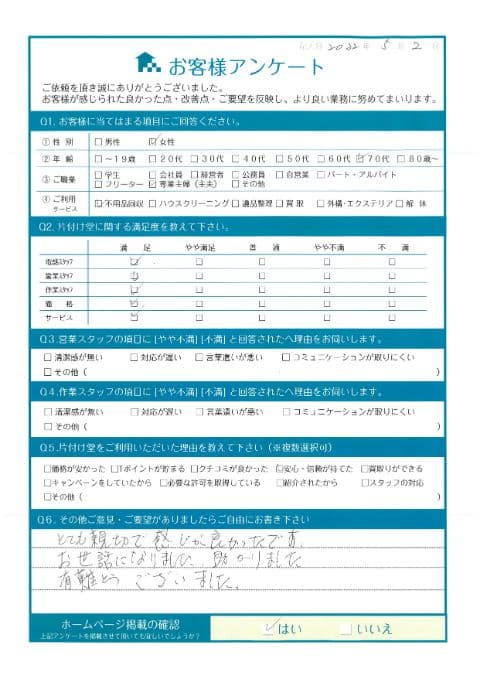 記入日 2022年 5月 2日
お客様アンケート
ご依頼を頂き誠にありがとうございました。
お客様が感じられた良かった点・改善点・ご要望を反映し、より良い業務に努めてまいります。
Q1. お客様に当てはまる項目にご回答ください。
①性 別 □男性 ☑女性
②年 齢 □～19歳 □20代 □30代 □40代 □50代 □60代 ☑70代 □80歳～
③ご職業 □学生 □会社員 □経営者 □公務員 □自営業 □パート・アルバイト
□フリーター ☑専業主婦（主夫） □その他
④ご利用サービス ☑不用品回収 □ハウスクリーニング □遺品整理 □買取 □外構・エクステリア □解体
Q2. 片付け堂に関する満足度を教えて下さい。
満 足 やや満足 普 通 やや不満 不 満
電話スタッフ ☑ □ □ □ □
営業スタッフ ☑ □ □ □ □
作業スタッフ ☑ □ □ □ □
価 格 ☑ □ □ □ □
サービス ☑ □ □ □ □
Q3.営業スタッフの項目に [やや不満] [不満] と回答された人へ理由をお伺いします。
□清潔感が無い □対応が遅い □言葉遣いが悪い □コミュニケーションが取りにくい
□その他（ ）
Q4.作業スタッフの項目に [やや不満] [不満] と回答された人へ理由をお伺いします。
□清潔感が無い □対応が遅い □言葉遣いが悪い □コミュニケーションが取りにくい
□その他（ ）
Q5.片付け堂をご利用いただいた理由を教えて下さい（※複数選択可）
□価格が安かった □Tポイントが貯まる □クチコミが良かった ☑安心・信頼が持てた □買取りができる
□キャンペーンをしていたから □必要な許可を取得している □紹介されたから □スタッフの対応
□その他（ ）
Q6. その他ご意見・ご要望がありましたらご自由にお書き下さい
とても親切で感じが良かったです。
お世話になりました。助かりました
有難とうございました。
ホームページ掲載の確認 ☑はい □いいえ
上記アンケートを掲載させて頂いても宜しいでしょうか？